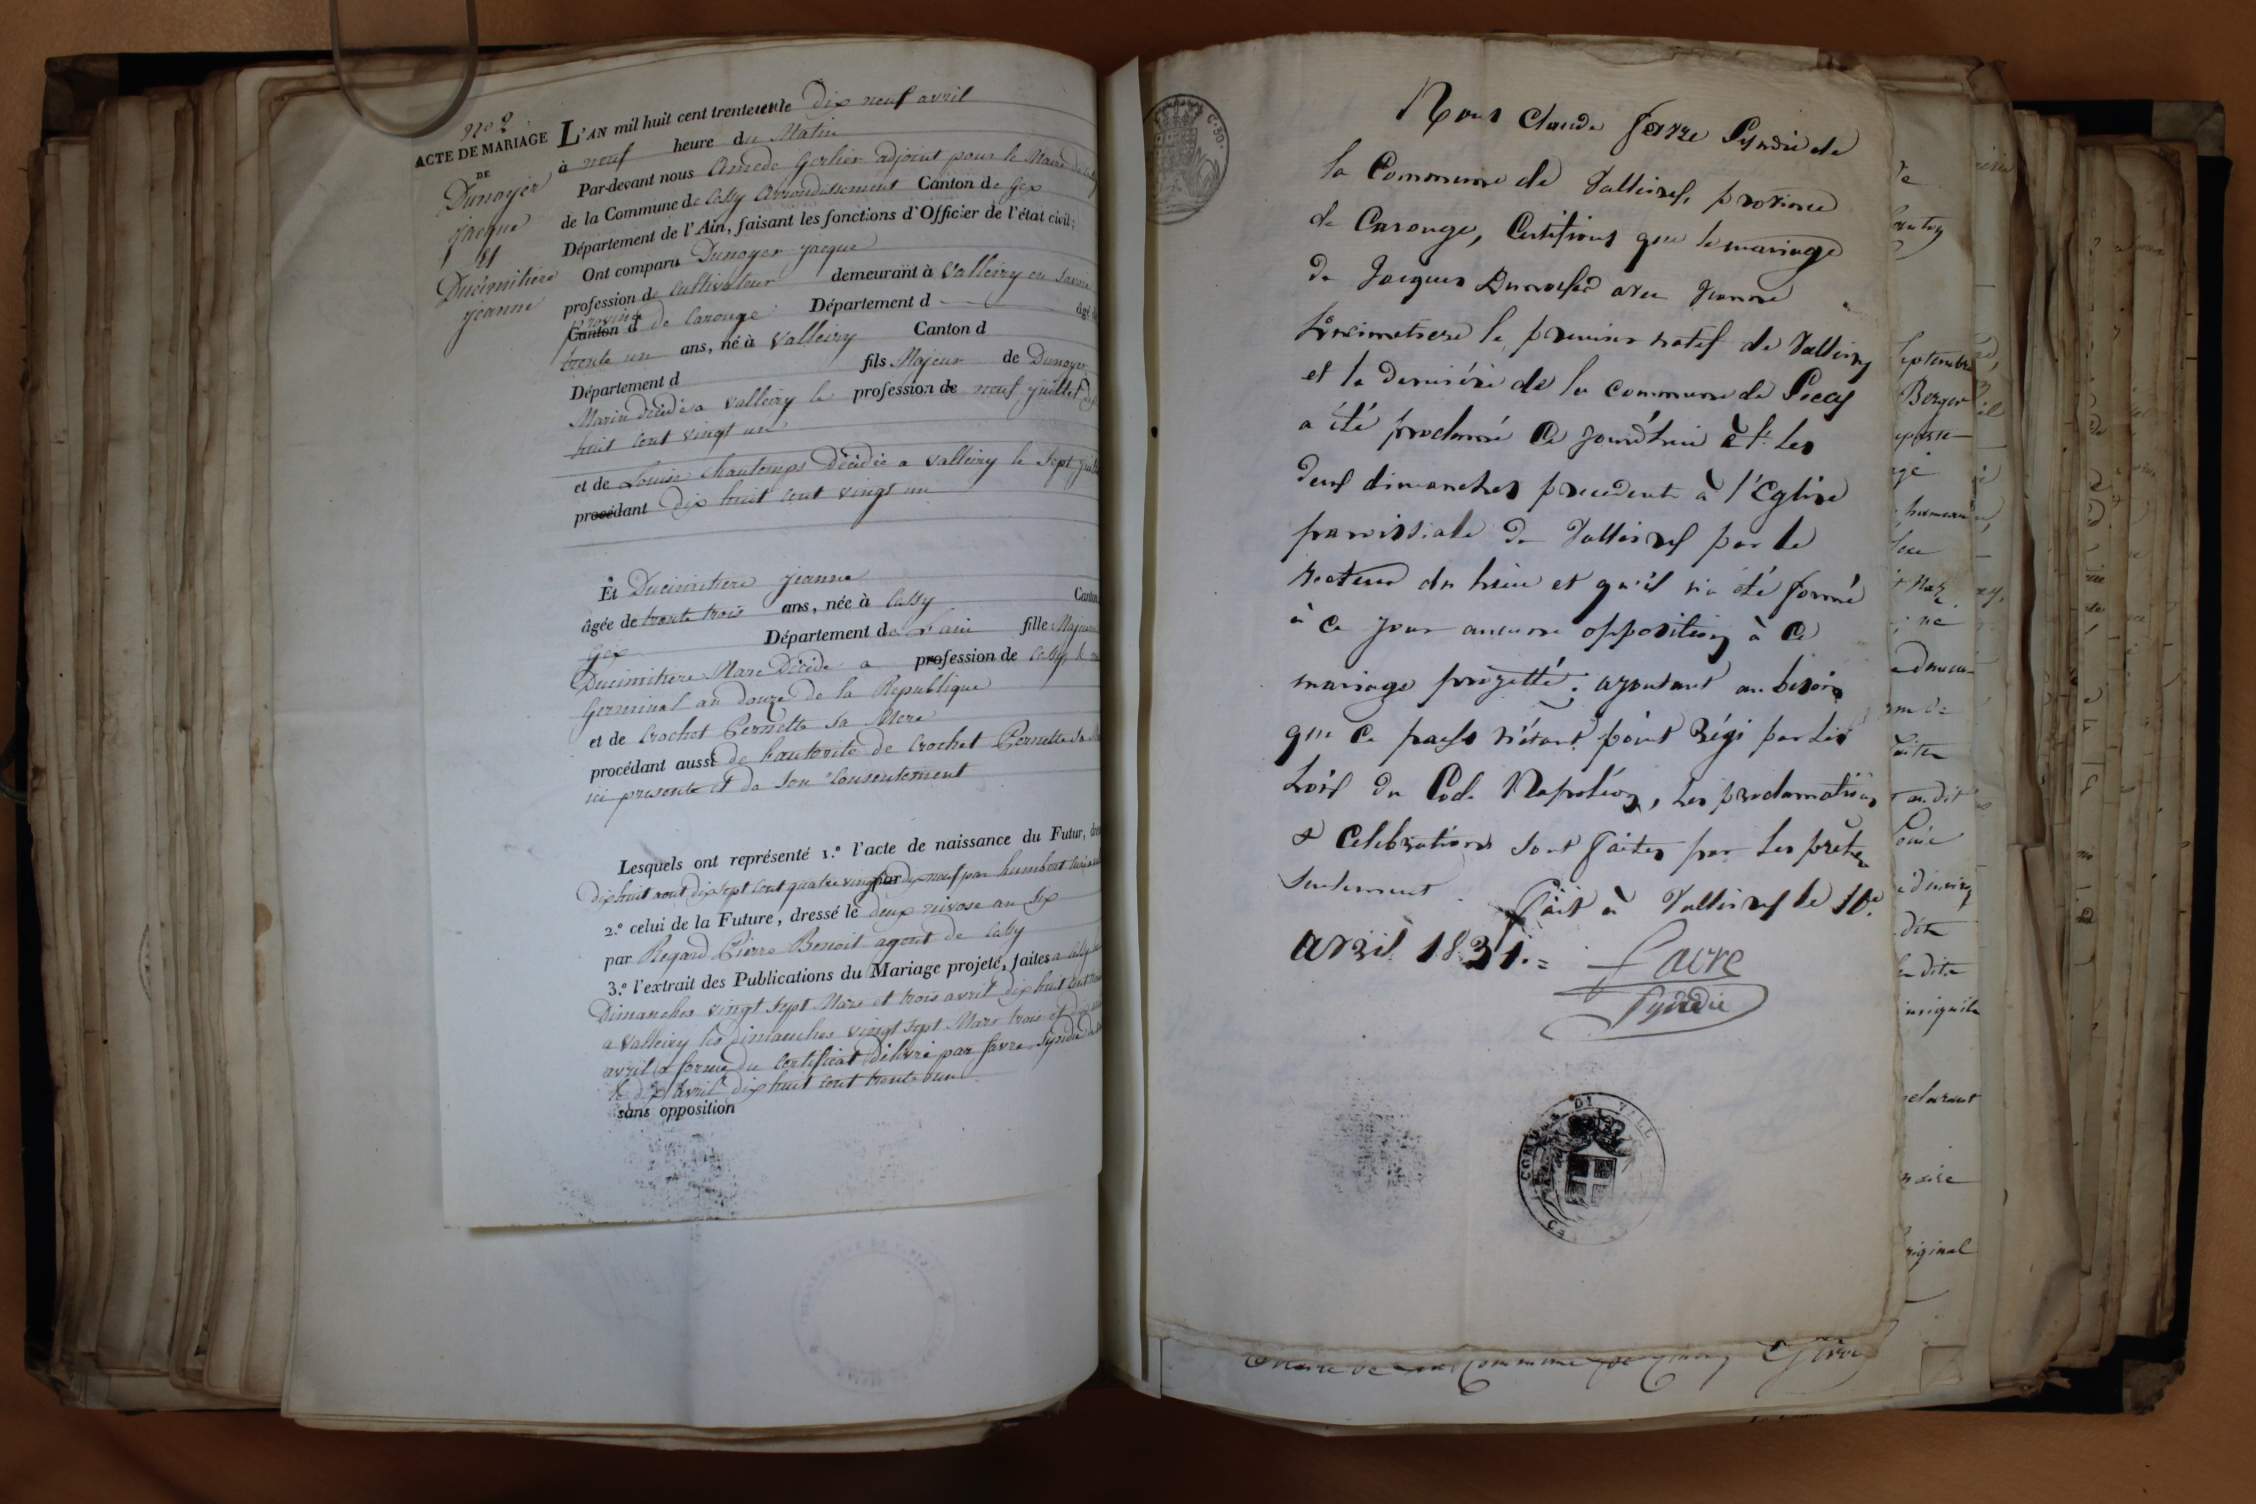 No 2
ACTE DE MARIAGE
DE
Dunoyer
jacque
et
Ducimitiere
jeanne
L'AN mil huit cent trente un le dix neuf avril
à neuf heure du Matin
Par-devant nous Amede Gerlier adjoint pour le Maire
de la Commune de Cessy Arrondissement Canton de Gex
Département de l'Ain, faisant les fonctions d'Officier de l'état civil;
Ont comparu Dunoyer jacque
profession de cultivateur demeurant à Valleiry en Savoie
province
Canton d de Carouge Département d âgé de
trente un ans, né à Valleiry Canton d
Département d fils Majeur de Dunoyer
Marin décédé a Valleiry le profession de neuf juillet dix
huit cent vingt un
et de Louise Chautemps Décédée a Valleiry le sept
procédant dix huit cent vingt un
Et Ducimitiere jeanne
âgée de trente trois ans, née à Cessy Canton
Gex Département de l'ain fille Majeure
Ducimitiere Marc Décédé a profession de Cessy le
Germinal an douze de la Republique
et de Crochet Pernette sa Mere
procédant aussi de l'autorité de Crochet Pernette sa
ici presente et de son consentement
Lesquels ont représenté 1.º l'acte de naissance du Futur,
dix huit aout dix sept cent quatre vingt par dix neuf par humbert
2.º celui de la Future, dressé le deux nivose an six
par Regard Pierre Benoit agent de Cessy
3.º l'extrait des Publications du Mariage projeté, faites a Cessy
Dimanches vingt sept Mars et trois avril dix huit cent
a Valleiry les dimanches vingt sept Mars trois et dix
avril a forme du certificat délivré par favre Syndic
le dix avril dix huit cent trente un
sans opposition
C. 30.
Nous Claude favre Syndic de
la Commune de Valleiry, province
de Carouge, Certifions que le mariage
de Jacques Dunoyer avec Jeanne
Ducimetiere le premier natif de Valleiry
et la derniére de la commune de Secy
a été proclamé ce jourd'hui & les
deux dimanches precedents à l'Eglise
paroissiale de Valleiry par le
recteur du lieu et qu'il n'a été formé
à ce jour aucune opposition à ce
mariage projetté; ajoutant au besoin
que ce pays n'étant point régi par les
Loix du Code Napoléon, les proclamations
& Celebrations sont faites par les prêtres
seulement. Fait à Valleiry le 10e
avril 1831.=
favre
Syndic
COMUNE DI
septembre
Berger
au dit
original